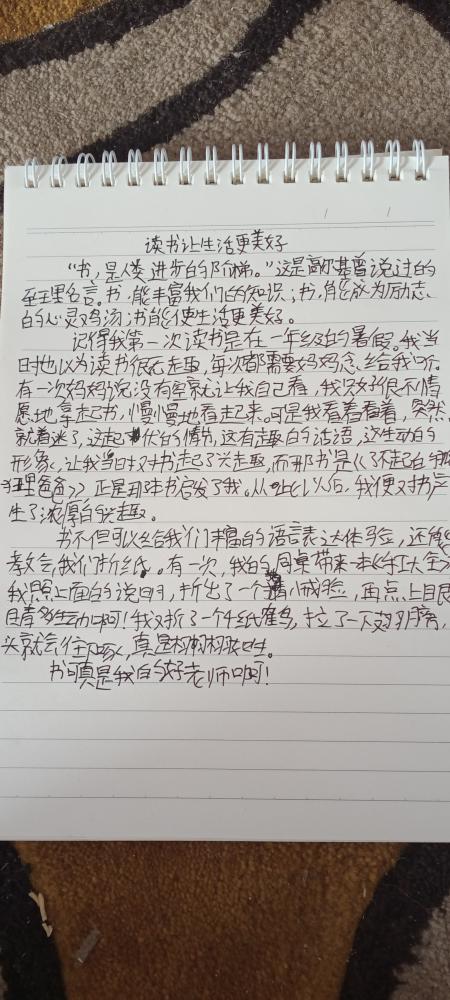 读书让生活更美好
“书，是人类进步的阶梯。”这是高尔基曾说过的
至理名言。书，能丰富我们的知识；书，能成为励志
的心灵鸡汤；书能使生活更美好。
记得我第一次读书是在一年级的暑假。我当
时也以为读书很无趣，每次都需要妈妈念给我听。
有一次妈妈说没有空就让我自己看，我只好很不情
愿地拿起书，慢慢地看起来。可是我看着看着，突然
就着迷了，这起伏的情节，这有趣的话语，这生动的
形象，让我当时对书起了兴趣，而那书是《了不起的
狐狸爸爸》正是那本书启发了我。从此以后，我便对书产
生了浓厚的兴趣。
书不但可以给我们丰富的语言表达体验，还能
教会我们折纸。有一次，我的同桌带来一本《手工大全》
我照上面的说明，折出了一个小脸，再点上眼
睛多生动啊！我又折了一个千纸鹤，拉了一下翅膀，
头就会往下，真是栩栩如生。
书可真是我的好老师啊！